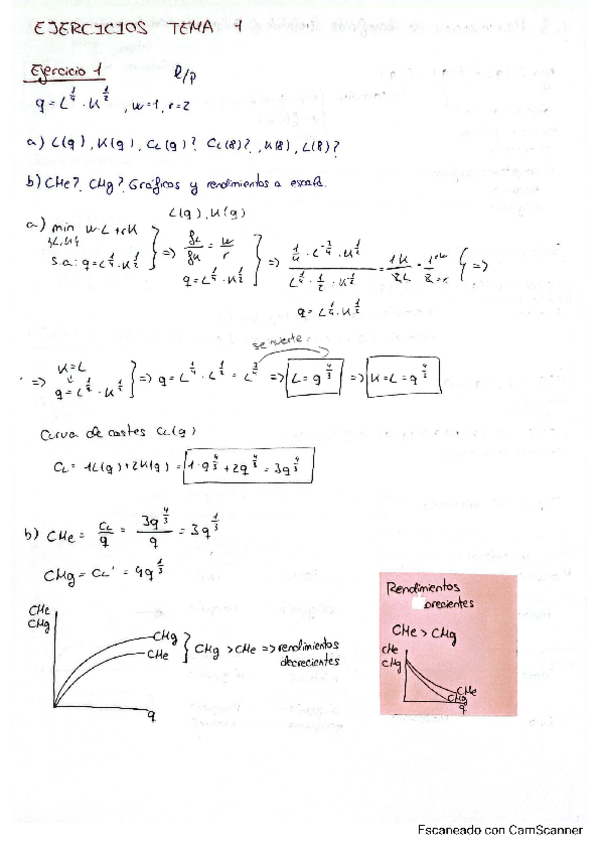 EJERCICIOS TEMA 1
Ejercicio 1 l/p
q = L^1/4 · K^1/2 , w=1, r=2
a) L(q), K(q), CL(q)? CL(8)?, K(8), L(8)?
b) CMe?, CMg? Gráficos y rendimientos a escala.
L(q), K(q)
a) min w·L + rK
{L,K}
s.a: q = L^1/4 · K^1/2 } => fL/fK = w/r
q = L^1/4 · K^1/2 } => (1/4 · L^-3/4 · K^1/2) / (L^1/4 · 1/2 · K^-1/2) = 1K/2L = 1/2 { =>
q = L^1/4 · K^1/2
se invierte:
=> K = L
q = L^1/4 · K^1/2 } => q = L^1/4 · L^1/2 = L^3/4 => L = q^4/3 => K = L = q^4/3
Curva de costes CL(q)
CL = 1L(q) + 2K(q) = 1·q^4/3 + 2q^4/3 = 3q^4/3
b) CMe = CL/q = 3q^4/3 / q = 3q^1/3
CMg = CL' = 4q^1/3
CMe
CMg
CMg
CMe
} CMg > CMe => rendimientos
decrecientes
q
Rendimientos
crecientes
CMe > CMg
CMe
CMg
CMe
CMg
q
Escaneado con CamScanner